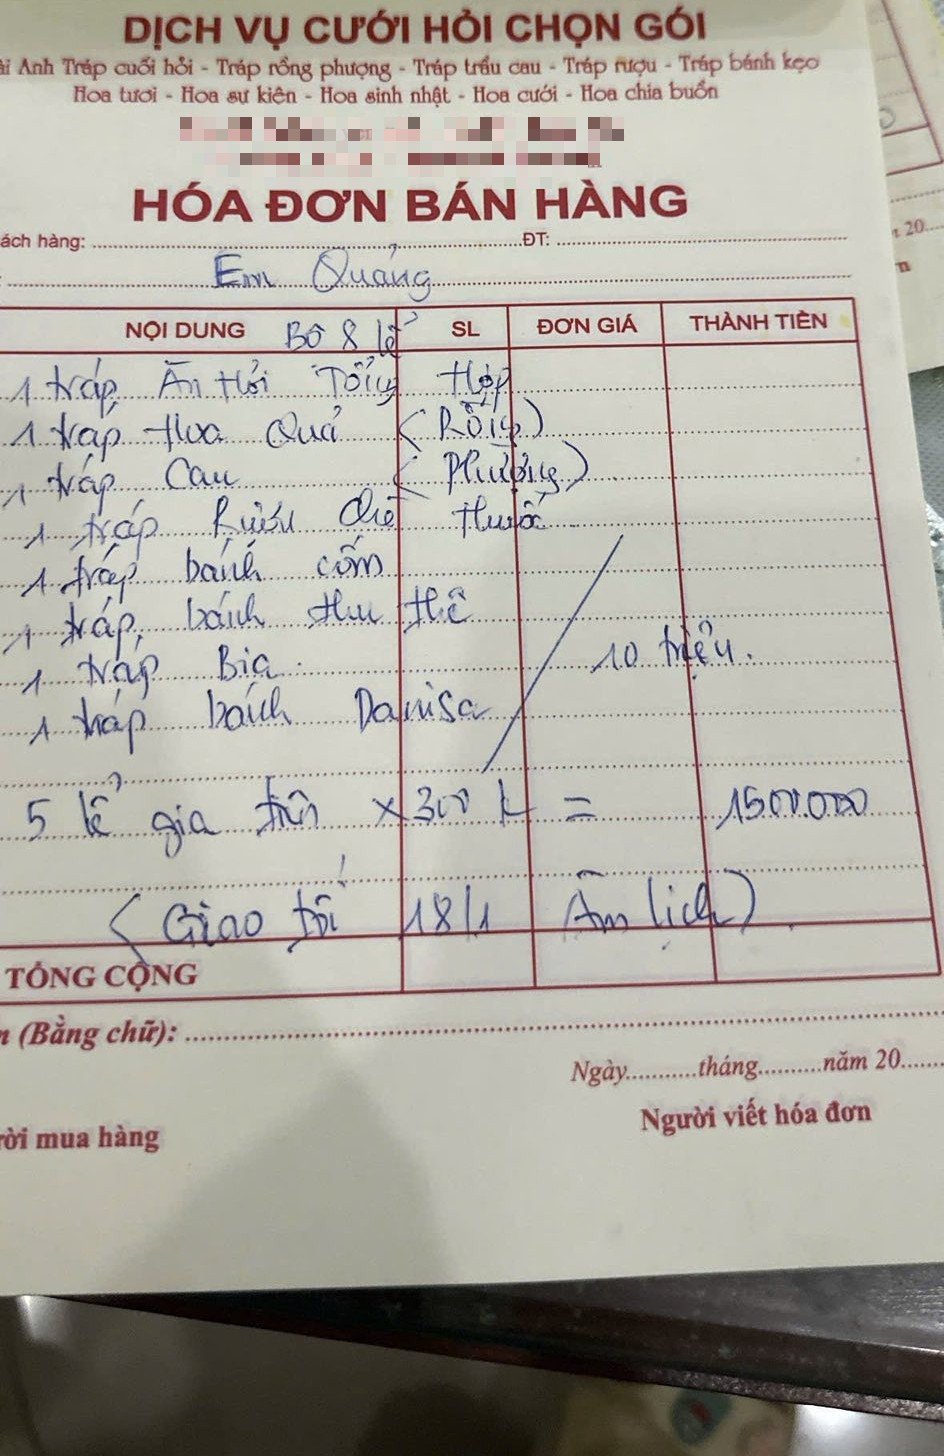 DỊCH VỤ CƯỚI HỎI CHỌN GÓI
ài Anh Tráp cưới hỏi - Tráp rồng phượng - Tráp trầu cau - Tráp rượu - Tráp bánh kẹo
Hoa tươi - Hoa sự kiện - Hoa sinh nhật - Hoa cưới - Hoa chia buồn
HÓA ĐƠN BÁN HÀNG
ách hàng: ĐT:
Em Quảng
NỘI DUNG Bộ 8 lễ SL ĐƠN GIÁ THÀNH TIỀN
1 tráp Ăn Hỏi Tổng Hợp
1 tráp Hoa Quả (Rồng)
1 tráp Cau (Phượng)
1 tráp Rượu Chè thuốc
1 tráp bánh cốm
1 tráp bánh thu thê
1 tráp Bia 10 triệu.
1 tráp bánh Danisa
5 lễ gia tiên x 300 k = 1500.000
(Giao tối 18/1 Âm lịch)
TỔNG CỘNG
n (Bằng chữ):
Ngày tháng năm 20
ười mua hàng Người viết hóa đơn
20
n